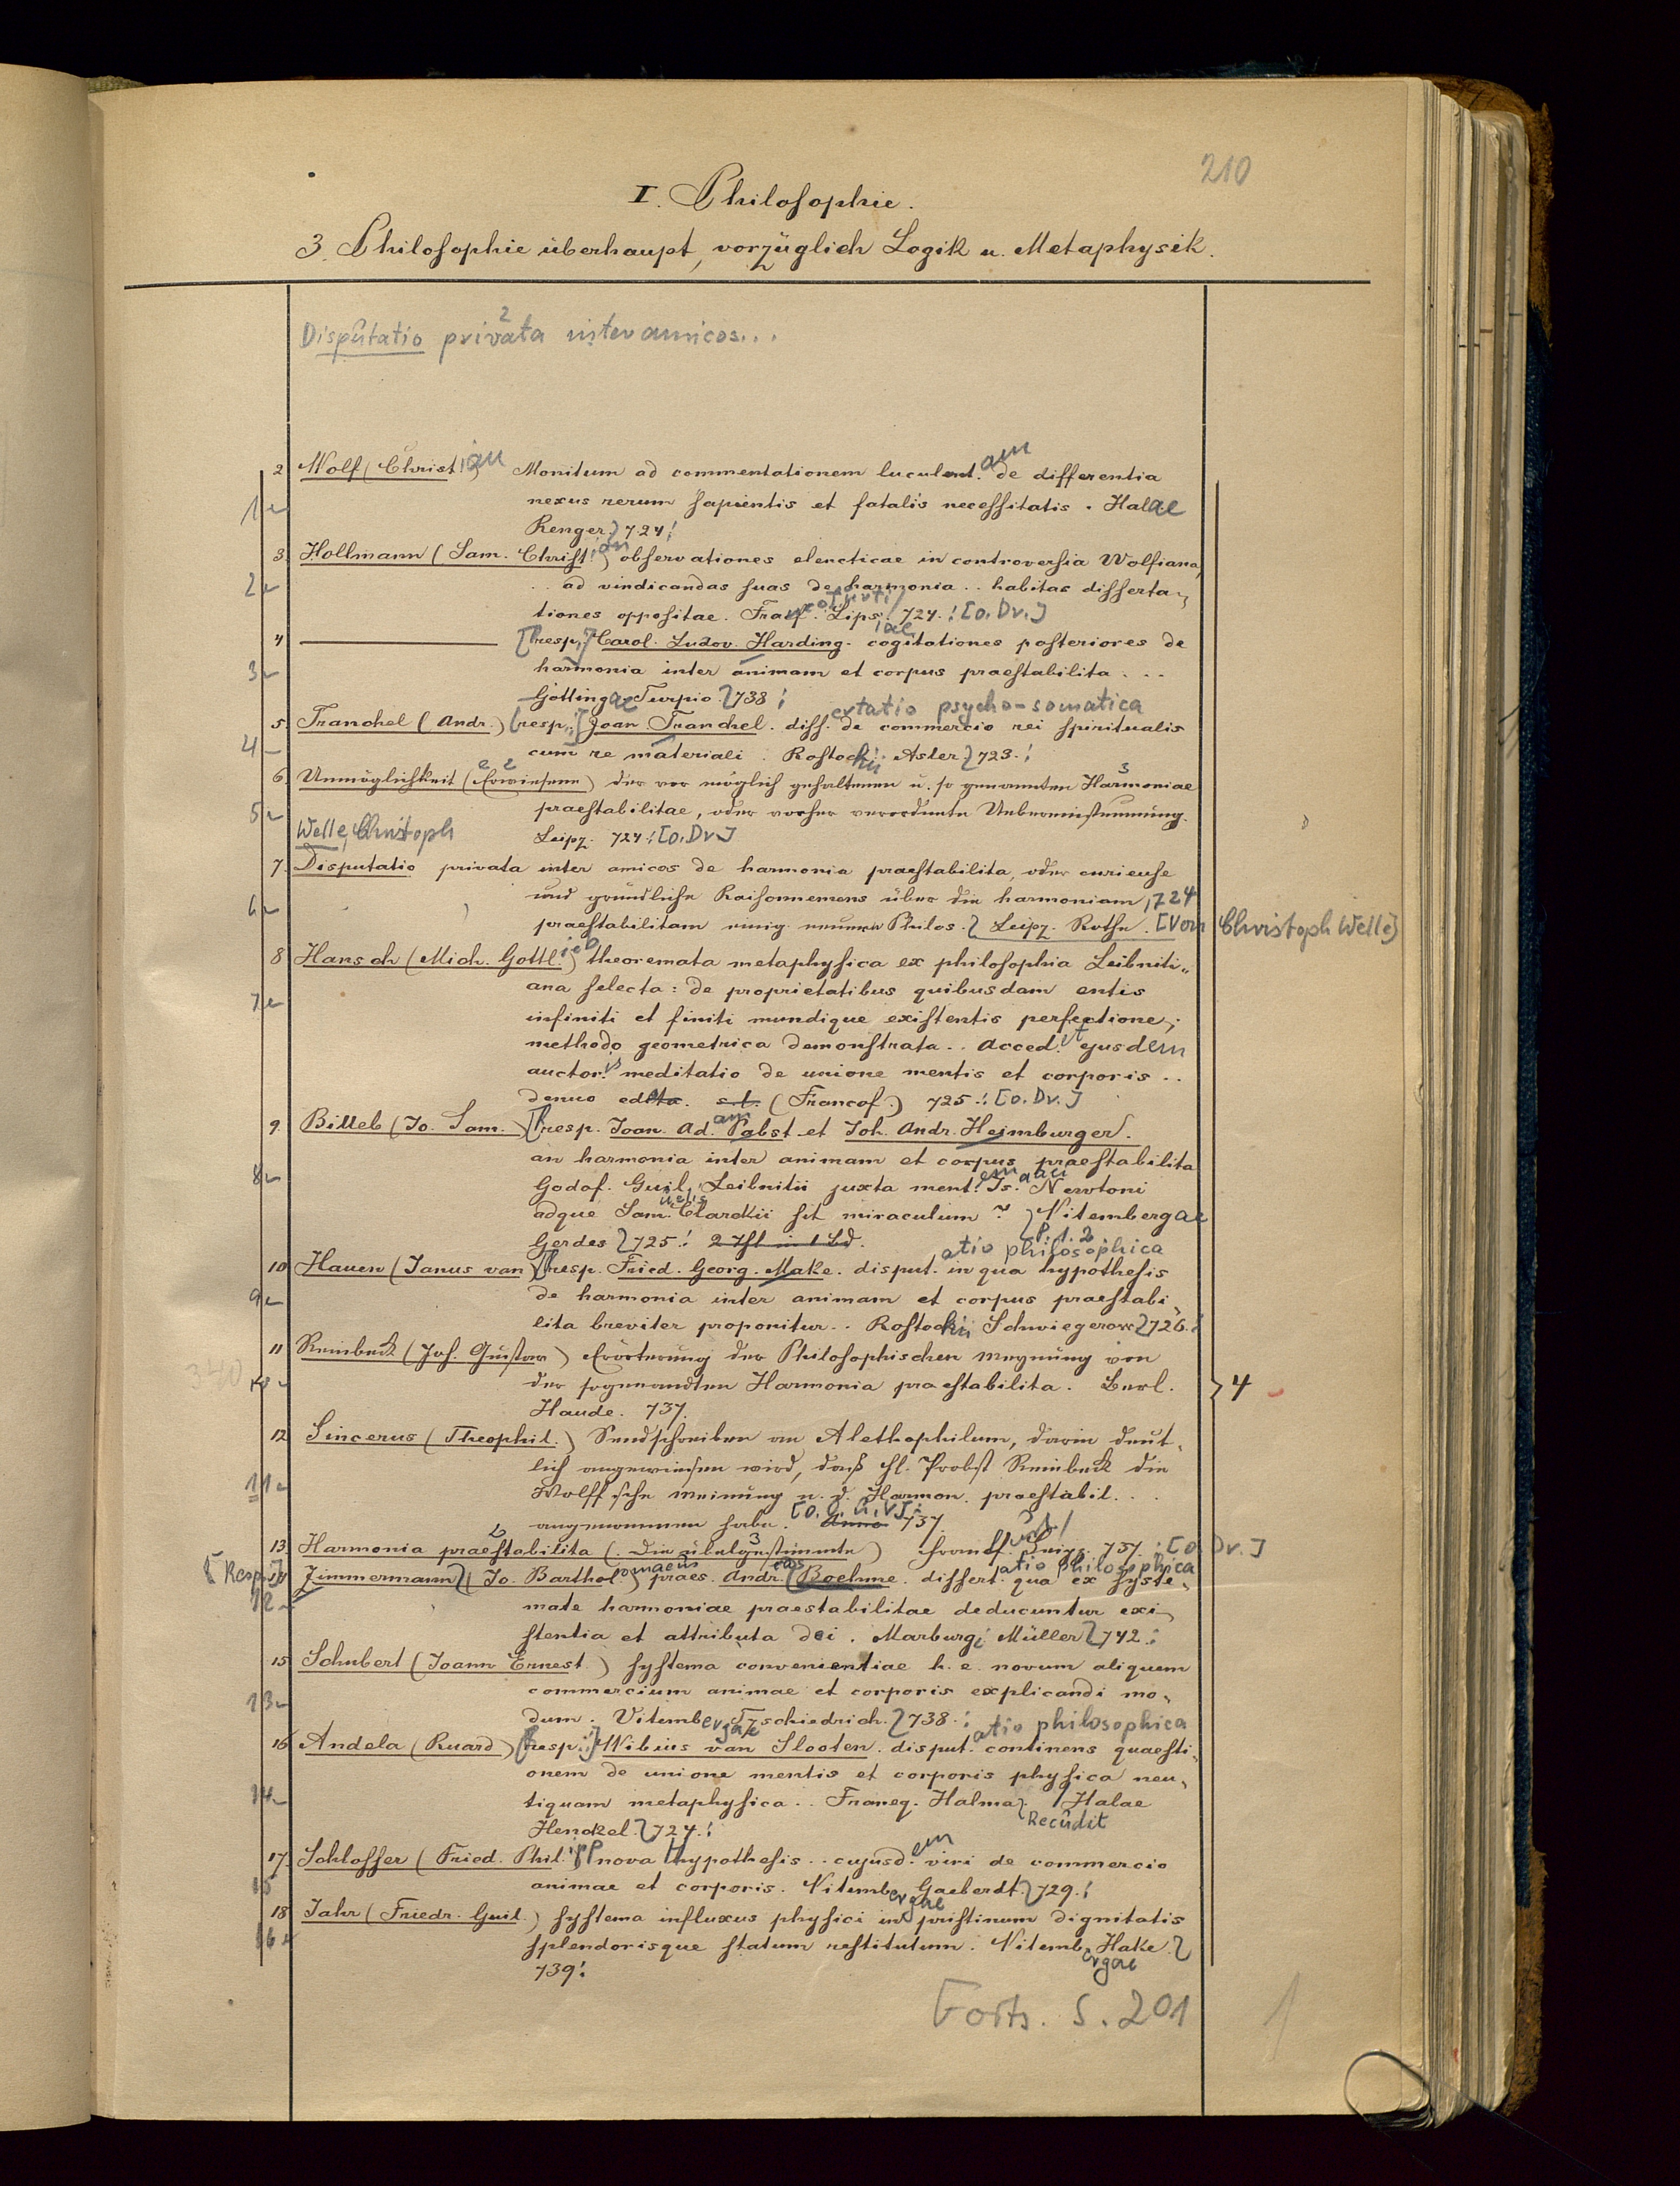 210
I. Philosophie.
3. Philosophie überhaupt, vorzüglich Logik u. Metaphysik.
Disputatio privata inter amicos...
2 Wolf (Christian) Monitum ad commentationem luculentam de differentia
nexus rerum sapientis et fatalis necessitatis. Halae
1 Renger 724!
3. Hollmann (Sam. Christian) observationes elencticae in controversia Wolfiana,
2 ad vindicandas suas de harmonia .. habitas disserta-
tiones oppositae. Francofurti/Lips. 724.! [o. Dr.]
4 ——— [resp.] Carol. Ludov. Harding. cogitationes posteriores de
3 harmonia inter animam et corpus praestabilita ...
Göttingae Turpio 738!
5. Tranchel (Andr.) (resp.) Joan Tranchel. dissertatio psycho-somatica de commercio rei spiritualis
4 cum re materiali. Rostochii Asler 723.!
6. Unmöglichkeit (Erwiesene) der vor möglich gehaltenen u. so genannten Harmoniae
5 praestabilitae, oder vorher verordnete Uebereinstimmung.
Welle, Christoph Leipz. 724! [o. Dr.]
7. Disputatio privata inter amicos de harmonia praestabilita, oder curieuse
6 und gründliche Raisonnemens über die harmoniam, 724
praestabilitam einig. neuern Philos. Leipz. Rothe. [Von Christoph Welle]
8 Hansch (Mich. Gottlieb) theoremata metaphysica ex philosophia Leibniti-
7 ana selecta: de proprietatibus quibusdam entis
infiniti et finiti mundique existentis perfectione,
methodo geometrica demonstrata.. Acced!t ejusdem
auctoris meditatio de unione mentis et corporis ..
denuo edita. s. l. (Francof.) 725.! [o. Dr.]
9. Billeb (Jo. Sam.) (resp. Joan. Adam Pabst et Joh. Andr. Heimburger.
an harmonia inter animam et corpus praestabilita
8 Godof. Guil. Leibnitii juxta mentem Isaaci Newtoni
adque Samuelis Clarckii sit miraculum? Vitembergae
Gerdes 725.! 2 Thl in 1 Bd. P. 1. 2
10 Hauen (Janus van) (resp. Fried. Georg. Make. disputatio philosophica in qua hypothesis
9 de harmonia inter animam et corpus praestabi-
lita breviter proponitur.. Rostochii Schwiegerow 726.!
11 Reinbeck (Joh. Gustav) Erörterung der Philosophischen Meynung von
340 10 der sogenandten Harmonia praestabilita. Berl. 4
Haude. 737.
12 Sincerus (Theophil.) Sendschreiben an Alethophilum, darin deut-
lich angewiesen wird, daß H. Probst Reinbeck die
11 Wolff'sche Meinung v. d. Harmon. praestabil...
angenommen habe. [o. O. u. V.] Anno 737.
13. Harmonia praestabilita (Die übelgestimmte) Francf. Leipz. 737.! [o. Dr.]
[Resp.] Zimmermann (Jo. Bartholomaeus) praes. Andreas Boehme. dissertatio philosophica qua ex syste-
12 mate harmoniae praestabilitae deducuntur exi-
stentia et attributa dei. Marburgi Müller 742.!
15. Schubert (Joann Ernest.) systema convenientiae h. e. novum aliquem
commercium animae et corporis explicandi mo-
13 dum. Vitembergae Tzschiedrich. 738.!
16 Andela (Ruard) (resp.) Wibius van Slooten. disputatio philosophica continens quaesti-
onem de unione mentis et corporis physica neu-
14 tiquam metaphysica.. Franeq. Halma. Recudit Halae
Henckel. 724.!
17. Schlosser (Fried. Philipp) nova hypothesis .. cujusdem viri de commercio
15 animae et corporis. Vitembergae Gaeberdt. 729.!
18. Jahr (Friedr. Guil.) systema influxus physici in pristinum dignitatis
16 splendorisque statum restitutum. Vitembergae Hake.
739!
Forts. S. 201
1